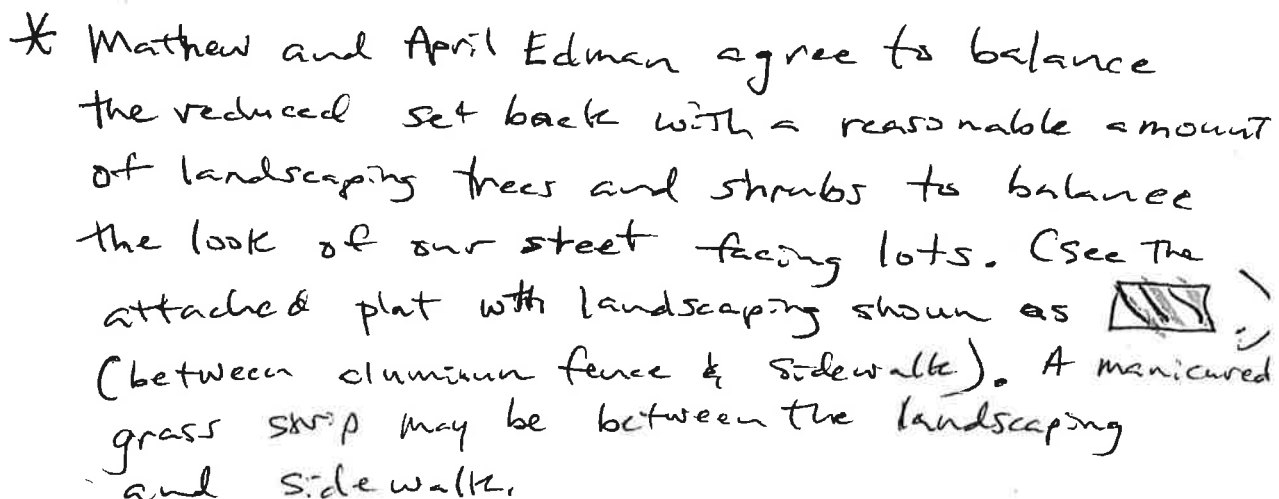 * Mathew and April Edman agree to balance
the reduced set back with a reasonable amount
of landscaping trees and shrubs to balance
the look of our steet facing lots. (See the
attached plat with landscaping shown as ).
(between aluminun fence & sidewalk). A manicured
grass strip may be between the landscaping
and sidewalk.